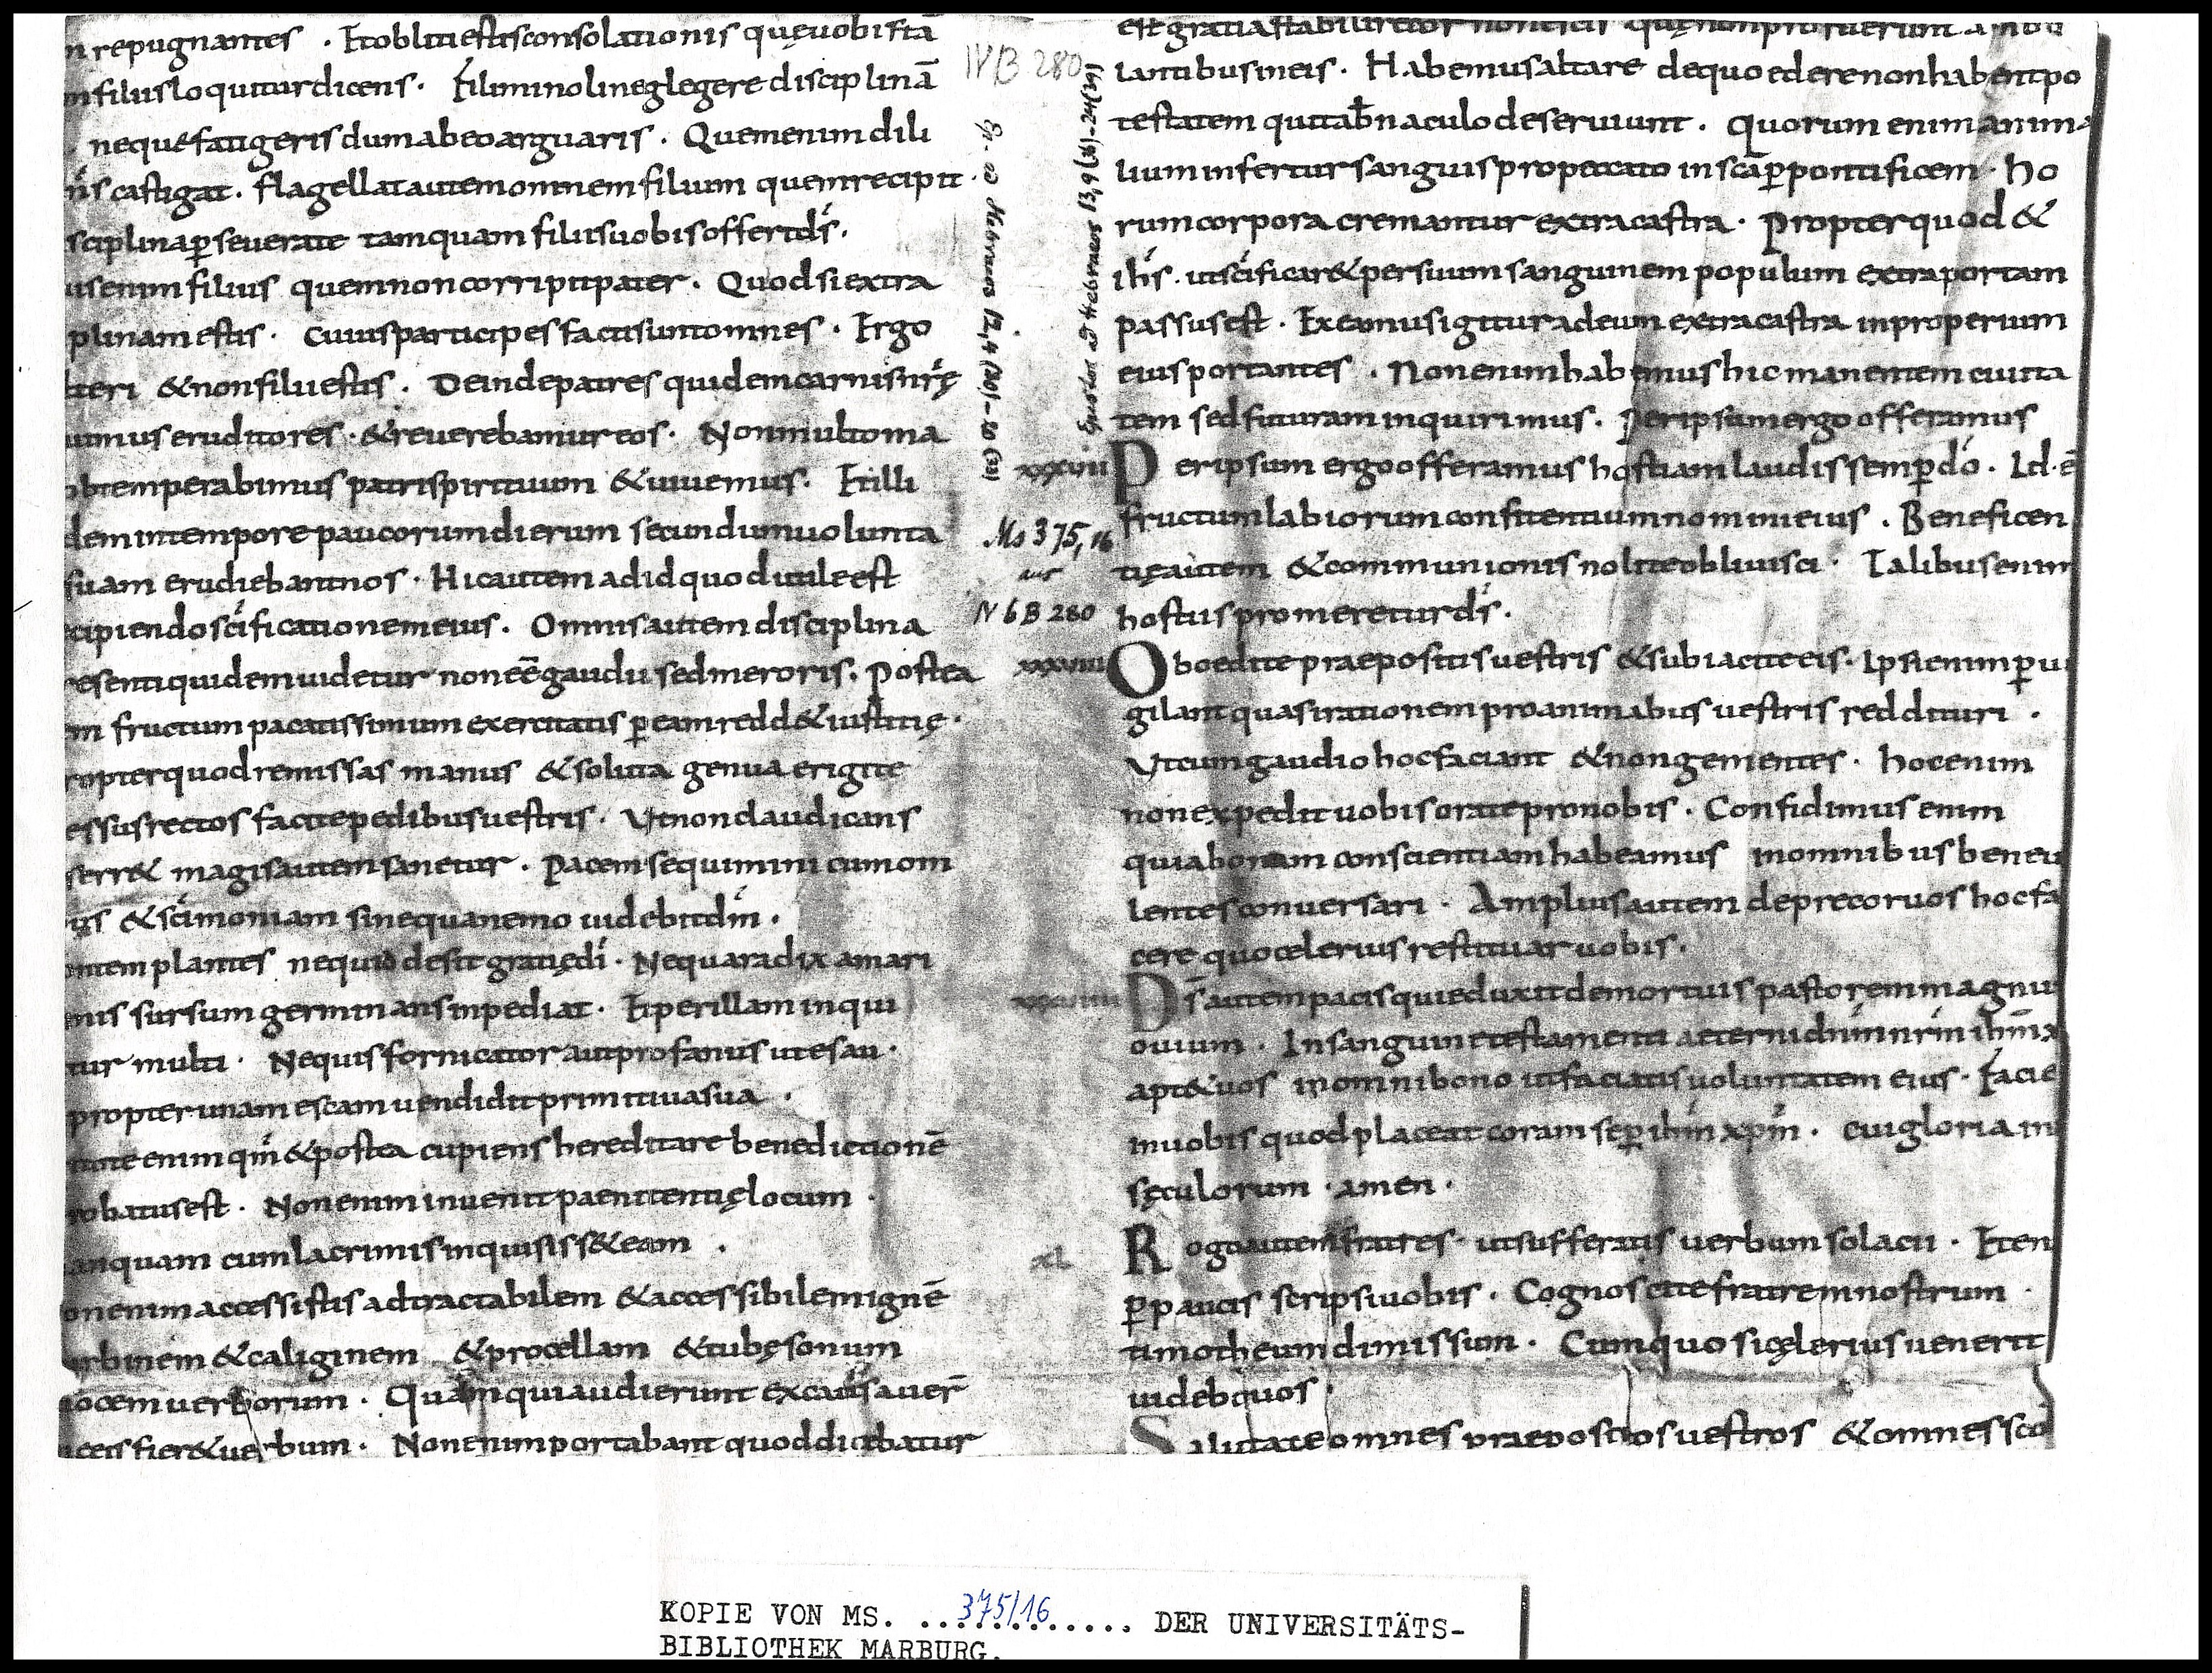 n repugnantes . Et obliti estis consolationis quę uobis tā
m filiis loquitur dicens . Fili mi noli neglegere disciplinā
neque fatigeris dum ab eo arguaris . Quem enim dili
dn̄s castigat . flagellat autem omnem filium quem recipit .
sciplina p̱seuerate tamquam filiis uobis offert ds̄ .
us enim filius quem non corripit pater . Quod si extra
plinam estis . cuius participes facti sunt omnes . Ergo
lteri & non filii estis . Deinde patres quidem carnis nr̄ę
uimus eruditores . & reuerebamur eos . Non multo ma
obtemperabimus patri spirituum & uiuemus . Et illi
dem in tempore paucorum dierum secundum uolunta
suam erudiebant nos . Hic autem ad id quod utile est
cipiendo sc̄ificationem eius . Omnis autem disciplina
resenti quidem uidetur non eē gaudii sed meroris . Postea
em fructum pacatissimum exercitatis p̱ eam redd& iustitię .
ropter quod remissas manus & soluta genua erigite
essus rectos facite pedibus uestris . Ut non claudicans
err& magis autem sanetur . Pacem sequimini cum om
us & sc̄imoniam sine qua nemo uidebit dm̄ .
ontemplantes ne quis desit gratię dī . Ne qua radix amari
nis sursum germinans inpediat . Et per illam inqui
tur multi . Ne quis fornicator aut profanus ut esau .
propter unam escam uendidit primitiua sua .
tote enim qm̄ & postea cupiens hereditare benedictionē
robatus est . Non enim inuenit paenitentię locum .
anquam cum lacrimis inquisiss& eam .
on enim accessistis ad tractabilem & accessibilem ignē
urbinem & caliginem & procellam & tubę sonum
uocem uerborum . Quam qui audierunt excusauer̄
is fier& uerbum . Non enim portabant quod dicebatur
IV B 280
Ep. ad Hebraeos 12,4 (20) - 20 (33)
Epistola ad Hebraeos 13,9 (36) - 24 (39)
Ms 375,16
aus
IV 6 B 280
est gratia stabilire cor non escis quę non profuerunt ambu
lantibus in eis . Habemus altare de quo edere non habent po
testatem qui tab̄naculo deseruiunt . Quorum enim anima
lium infertur sanguis pro peccato in sc̄a p̱ pontificem . ho
rum corpora cremantur extra castra . Propter quod &
ihs̄ . ut sc̄ificar& per suum sanguinem populum extra portam
passus est . Exeamus igitur ad eum extra castra inproperium
eius portantes . Non enim habemus hic manentem ciuita
tem sed futuram inquirimus . Per ipsum ergo offeramus
xxxvii Per ipsum ergo offeramus hostiam laudis semp̱ dō . Id ē
fructum labiorum confitentium nomini eius . Beneficen
tię autem & communionis nolite obliuisci . Talibus enim
hostiis promeretur ds̄ .
xxxviii Oboedite praepositis uestris & subiacite eis . Ipsi enim p̱ui
gilant quasi rationem pro animabus uestris reddituri .
Ut cum gaudio hoc faciant & non gementes . hoc enim
non expedit uobis orate pro nobis . Confidimus enim
quia bonam conscientiam habeamus in omnibus bene u
lentes conuersari . Amplius autem deprecor uos hoc fa
cere quo celerius restituar uobis .
xxxviiii Ds̄ autem pacis qui eduxit de mortuis pastorem magnu
ouium . In sanguine testamenti aeterni dnm̄ nrm̄ ihm̄ x
apt& uos in omni bono ut faciatis uoluntatem eius . facie
in uobis quod placeat coram se p̱ ihm̄ xpm̄ . cui gloria in
sęculorum . amen .
xl Rogo autem fratres . ut sufferatis uerbum solacii . Eten
p̱paucis scripsi uobis . Cognoscite fratrem nostrum .
timotheum dimissum . Cum quo si cęlerius uenerit
uidebo uos .
Salutate omnes praepositos uestros & omnes sco
KOPIE VON MS. ..375/16...... DER UNIVERSITÄTS-
BIBLIOTHEK MARBURG.